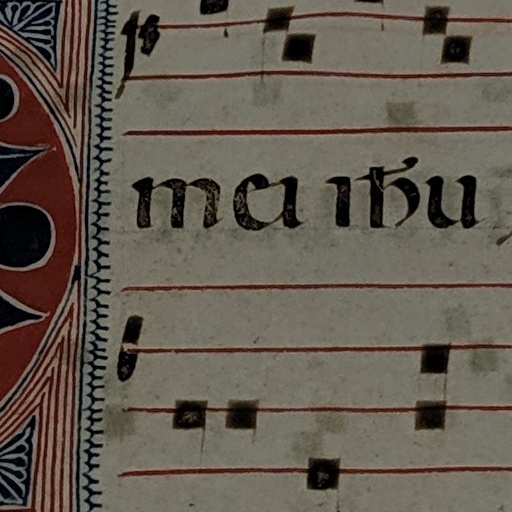 mei ihu